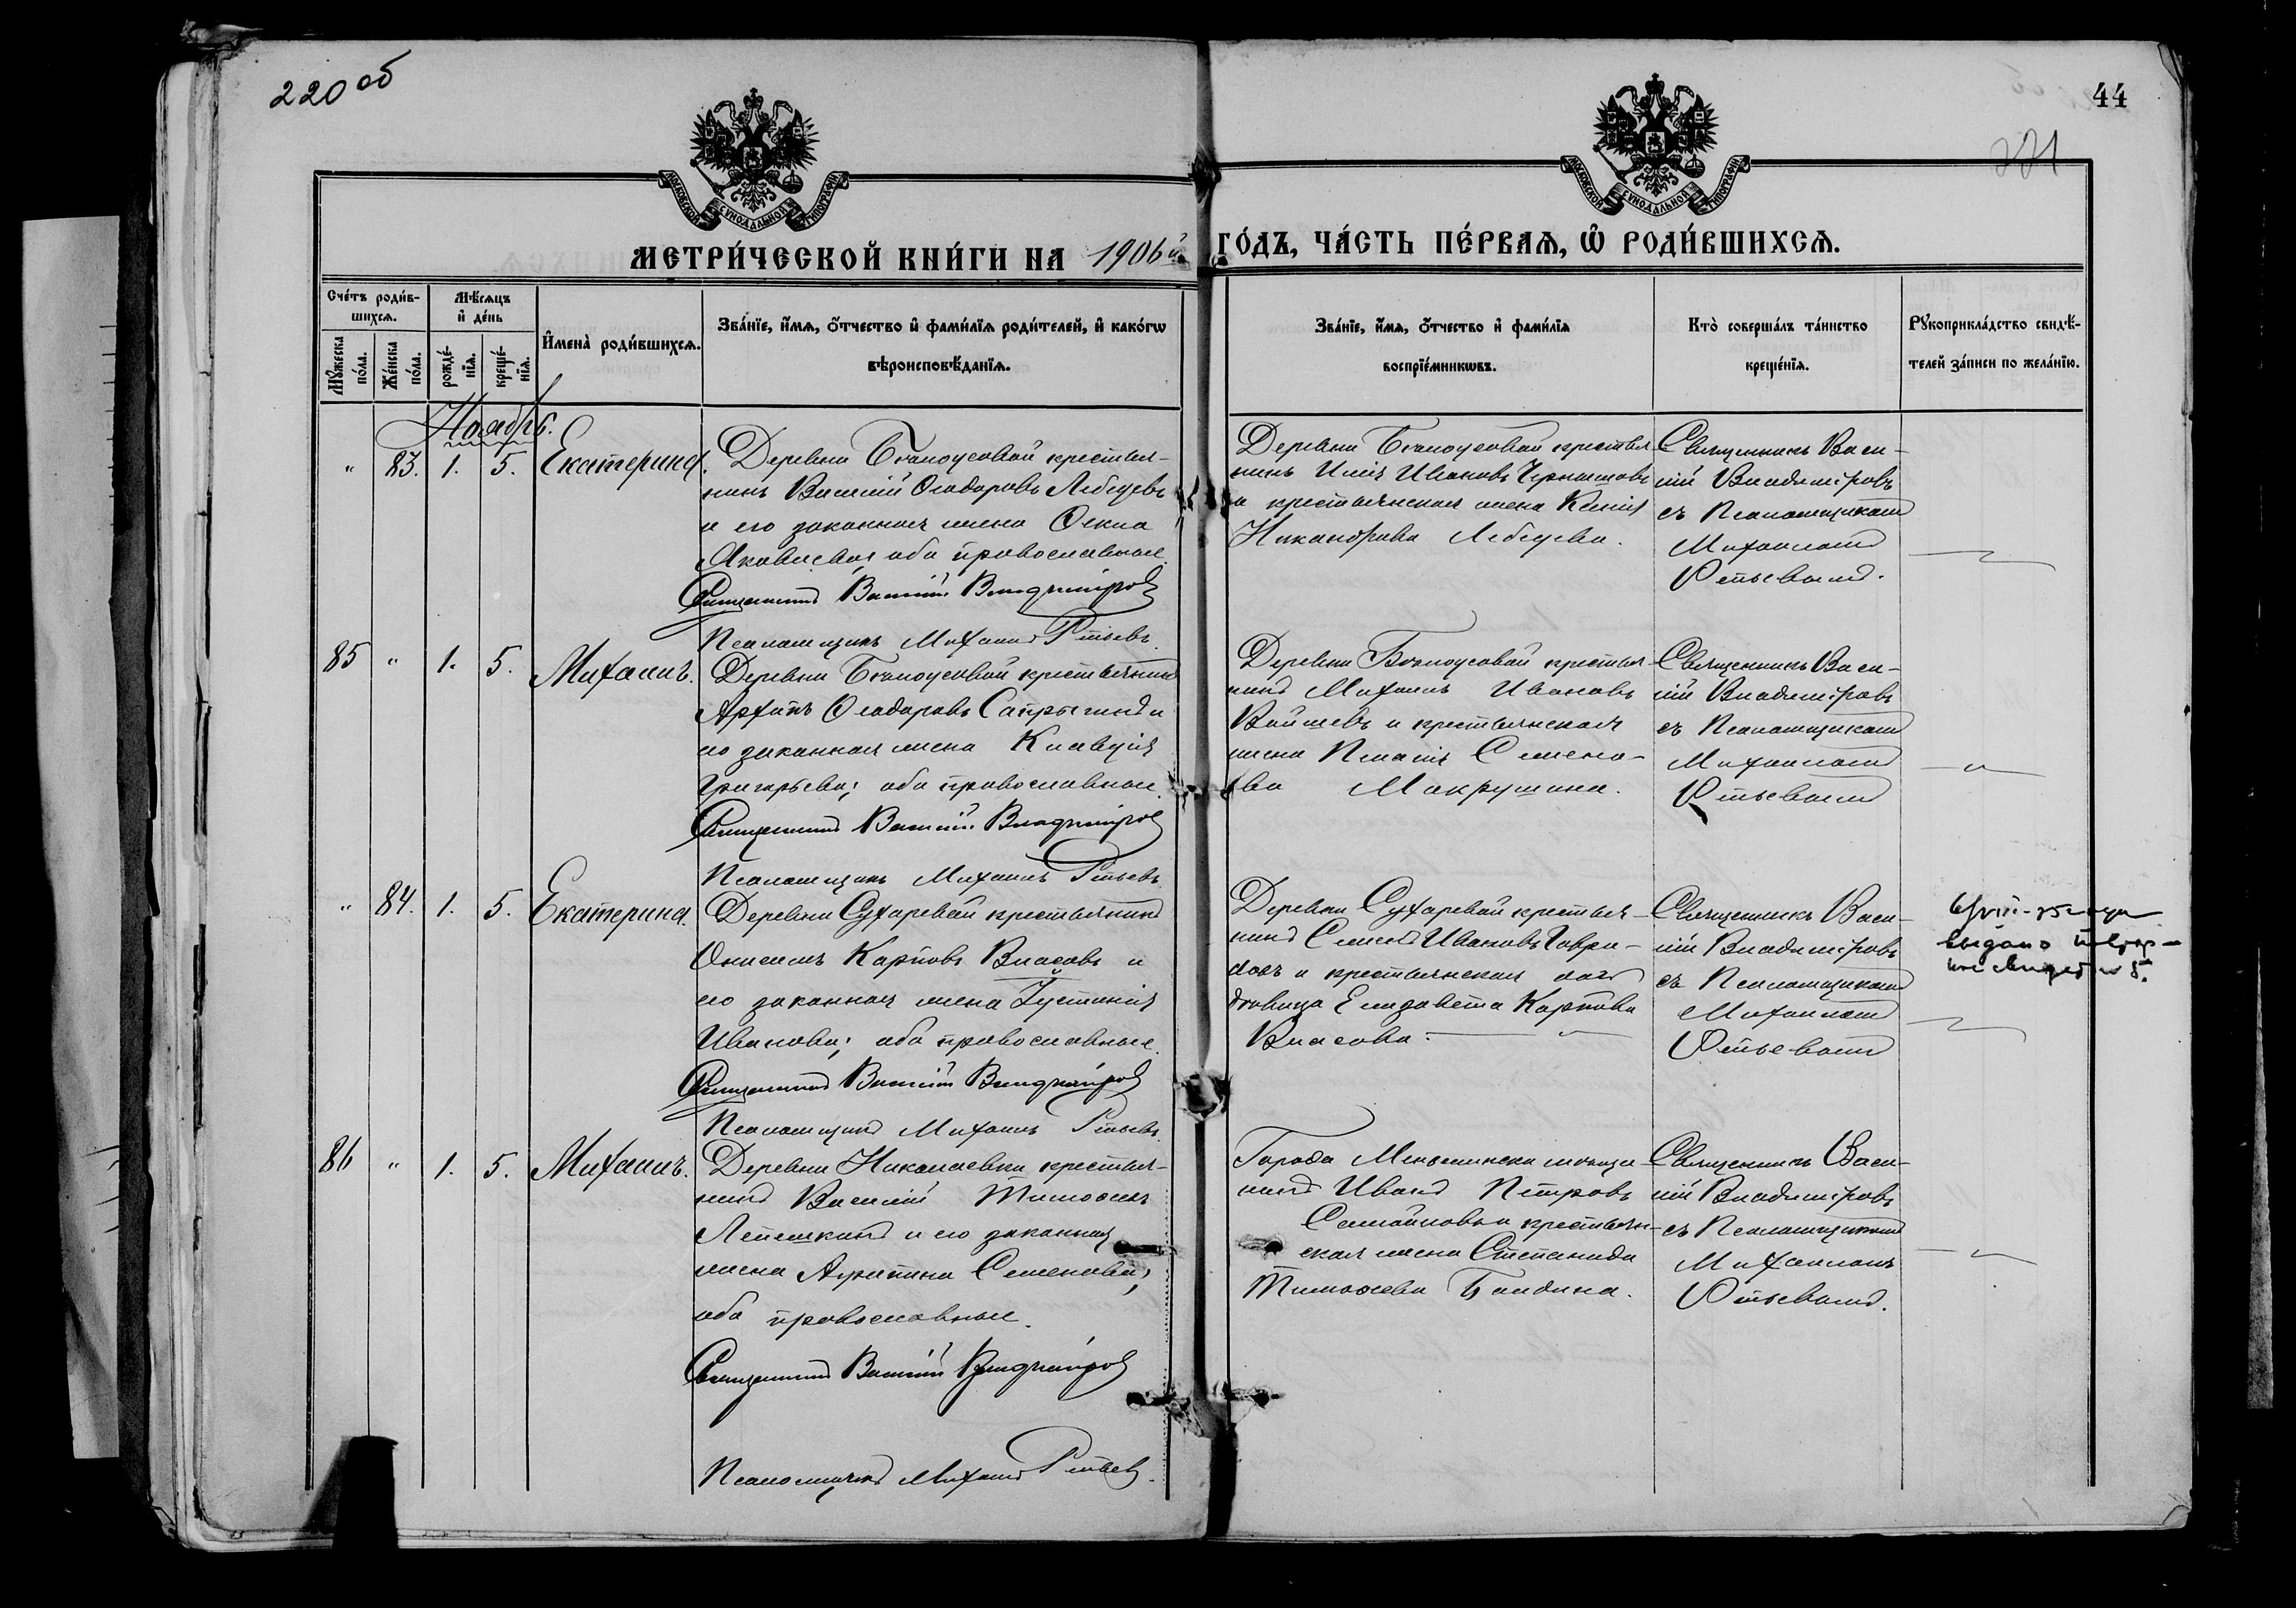 220 об
44
221
МОСКОВСКОЙ СУНОДАЛЬНОЙ ТИПОГРАФІИ
МОСКОВСКОЙ СУНОДАЛЬНОЙ ТИПОГРАФІИ
МЕТРИ́ЧЕСКОЙ КНИ́ГИ НА 1906й
ГО́ДЪ, ЧА́СТЬ ПЕ́РВАѦ, Ѡ҆ РОДИ́ВШИХСѦ.
Сче́тъ роди́в-
шихсѧ.
Мꙋ́жеска по́ла.
Же́нска по́ла.
Мѣ́сѧцъ
и҆ де́нь
рожде́-
нїѧ.
креще́-
нїѧ.
И҆мена̀ роди́вшихсѧ.
Зва́нїе, и҆́мѧ, ѻ҆́тчество и҆ фами́лїѧ роди́телей, и҆ како́гѡ
вѣроисповѣ́данїѧ.
Зва́нїе, и҆́мѧ, ѻ҆́тчество и҆ фами́лїѧ
воспрїе́мникѡвъ.
Кто̀ соверша́лъ та́инство
креще́нїѧ.
Рꙋкоприкла́дство свидѣ́-
телей за́писи по жела́нїю.
Ноябрь.
" 83. 1. 5. Екатерина.
Деревни Бѣлоусовой крестья-
нинъ Василій Ѳеодоровъ Лебедевъ
и его законная жена Ѳекла
Яковлева, оба православные.
Священникъ Василій Владиміровъ
Псаломщикъ Михаилъ
Деревни Бѣлоусовой крестья-
нинъ Илія Ивановъ
и крестьянская жена Ксенія
Никанорова Лебедева.
Священникъ Васи-
лій Владиміровъ
съ Псаломщикомъ
Михаиломъ
85 " 1. 5. Михаилъ.
Деревни Бѣлоусовой крестьянинъ
Архипъ Ѳеодоровъ Сапрыгинъ и
его законная жена Клавдія
Григорьева; оба православные.
Священникъ Василій Владиміровъ
Псаломщикъ Михаилъ
Деревни Бѣлоусовой крестья-
нинъ Михаилъ Ивановъ
и крестьянская
жена Семено-
ва Мокрушина.
Священникъ Васи-
лій Владиміровъ
съ Псаломщикомъ
Михаиломъ
" 84. 1. 5. Екатерина.
Деревни Сухаревой крестьянинъ
Онисимъ Карповъ Власовъ и
его законная жена Іустинія
Иванова; оба православные.
Священникъ Василій Владиміровъ
Псаломщикъ Михаилъ
Деревни Сухаревой крестья-
нинъ Семенъ Ивановъ Гаври-
ловъ и крестьянская
Елизавета Карпова
Власова.
Священникъ Васи-
лій Владиміровъ
съ Псаломщикомъ
Михаиломъ
выдано повтор-
ное
86 " 1. 5. Михаилъ.
Деревни Николаевки крестья-
нинъ Василій Тимоѳеевъ
Лепешкинъ и его законная
жена Агрипина Семенова;
оба православные.
Священникъ Василій Владиміровъ
Псаломщикъ Михаилъ
Города Мензелинска мѣща-
нинъ Иванъ Петровъ
Самойловъ и крестьян-
ская жена Степанида
Тимоѳеева
Священникъ Васи-
лій Владиміровъ
съ Псаломщикомъ
Михаиломъ